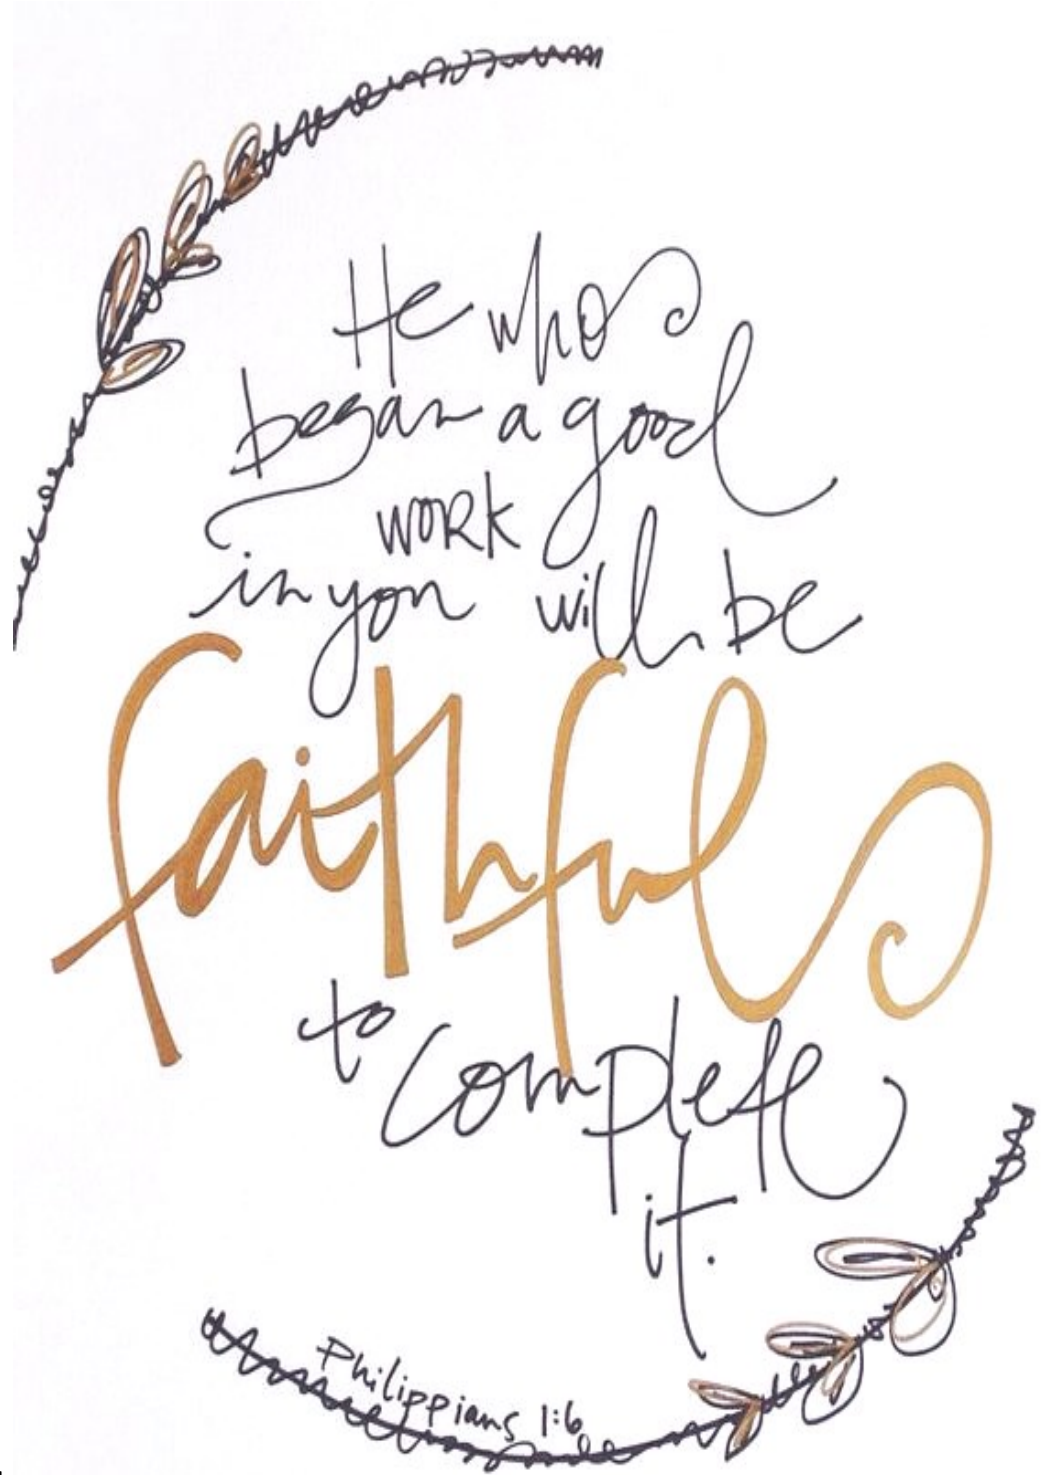 He who
began a good
work
in you will be
faithful
to
complete
it.
Philippians 1:6